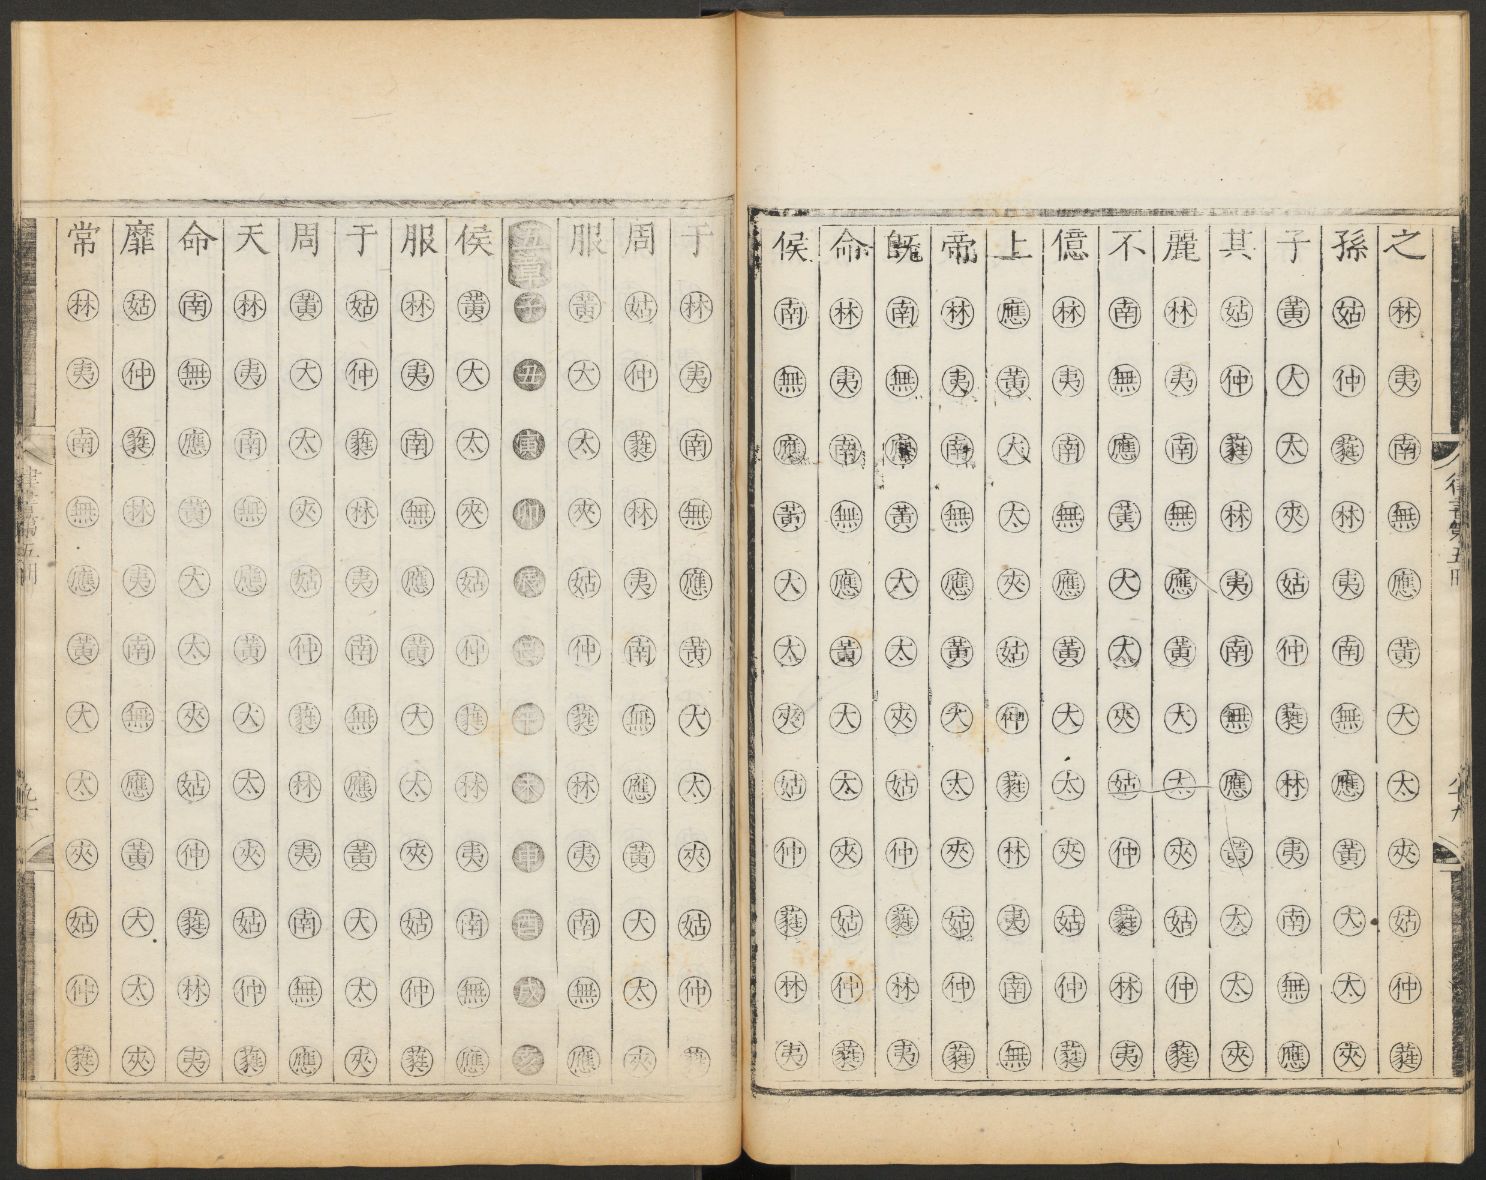 律書第五冊 八十九
之林夷南無應黃大太夾姑仲蕤
孫姑仲蕤林夷南無應黃大太夾
子黃大太夾姑仲蕤林夷南無應
其姑仲蕤林夷南無應黃太太夾
麗林夷南無應黃大太夾姑仲蕤
不南無應黃大太夾姑仲蕤林夷
億林夷南無應黃大太夾姑仲蕤
上應黃大太夾姑仲蕤林夷南無
帝林夷南無應黃大太夾姑仲蕤
既南無應黃大太夾姑仲蕤林夷
命林夷南無應黃大太夾姑仲蕤
侯南無應黃大太夾姑仲蕤林夷
于林夷南無應黃大太夾姑仲蕤
周姑仲蕤林夷南無應黃大太夾
服黃大太夾姑仲蕤林夷南無應
五章子丑寅卯辰巳午未申酉戌亥
侯黃大太夾姑仲蕤林夷南無應
服林夷南無應黃大太夾姑仲蕤
于姑仲蕤林夷南無應黃大太夾
周黃大太夾姑仲蕤林夷南無應
天林夷南無應黃大太夾姑仲蕤
命南無應黃大太夾姑仲蕤林夷
靡姑仲蕤林夷南無應黃大太夾
常林夷南無應黃大太夾姑仲蕤
律書第五冊 九十